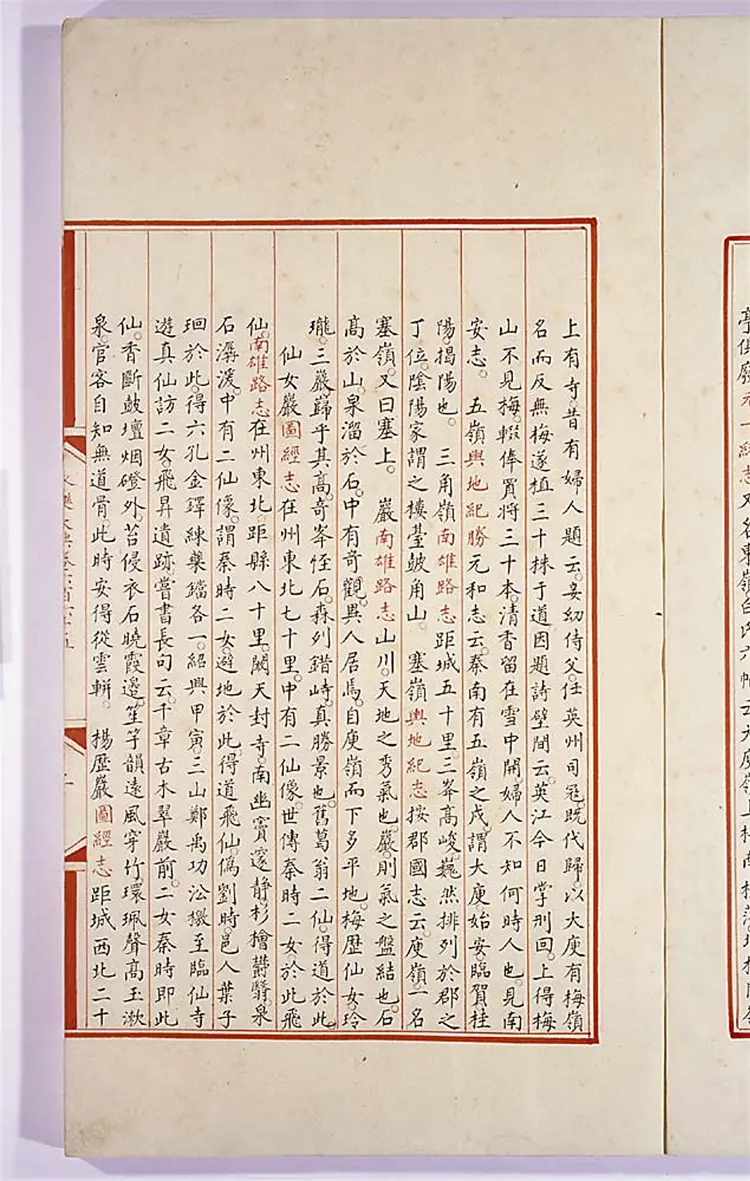 亭俱廢元一統志又名東嶺白氏六帖云大庾嶺上梅南枝落北枝
上有寺。昔有婦人題云。妾幼侍父任英州司寇。既代歸。以大庾有梅嶺
名而反無梅。遂植三十株于道。因題詩壁間云。英江今日掌刑回。上得梅
山不見梅。輟俸買將三十本。清香留在雪中開。婦人不知何時人也。見南
安志。五嶺輿地紀勝元和志云。秦南有五嶺之戍。謂大庾始安臨賀桂
陽。揭陽也。三角嶺南雄路志距城五十里。三峯高峻。巍然排列於郡之
丁位。陰陽家謂之樓臺皷角山。塞嶺輿地紀志按郡國志云。庾嶺。一名
塞嶺。又曰塞上。巖南雄路志山川。天地之秀氣也。巖。則氣之盤結也。石
高於山。泉溜於石。中有奇觀。異人居焉。自庾嶺而下多平地。梅歷仙女。玲
瓏。三巖巋乎其高。奇峯怪石。森列錯峙。真勝景也。舊葛翁二仙。得道於此。
仙女巖圖經志在州東北七十里。中有二仙像。世傳秦時二女於此飛
仙。南雄路志在州東北。距縣八十里。闕天封寺。南幽竇邃靜。杉檜欝翳。泉
石潺湲。中有二仙像。謂秦時二女。避地於此。得道飛仙。偽劉時。邑人葉子
珀於此。得六孔金鐸練藥鐺各一。紹興甲寅。三山鄭禹功沿檄至臨仙寺
遊真仙訪二女。飛昇遺跡。嘗書長句云。千章古木翠巖前。二女秦時即此
仙。香斷鼓壇烟磴外。苔侵衣石曉霞邊。笙竽韻遠風穿竹。環珮聲高玉漱
泉。官客自知無道骨。此時安得從雲軿。楊歷巖圖經志距城西北二十
永樂大典卷六百六十五